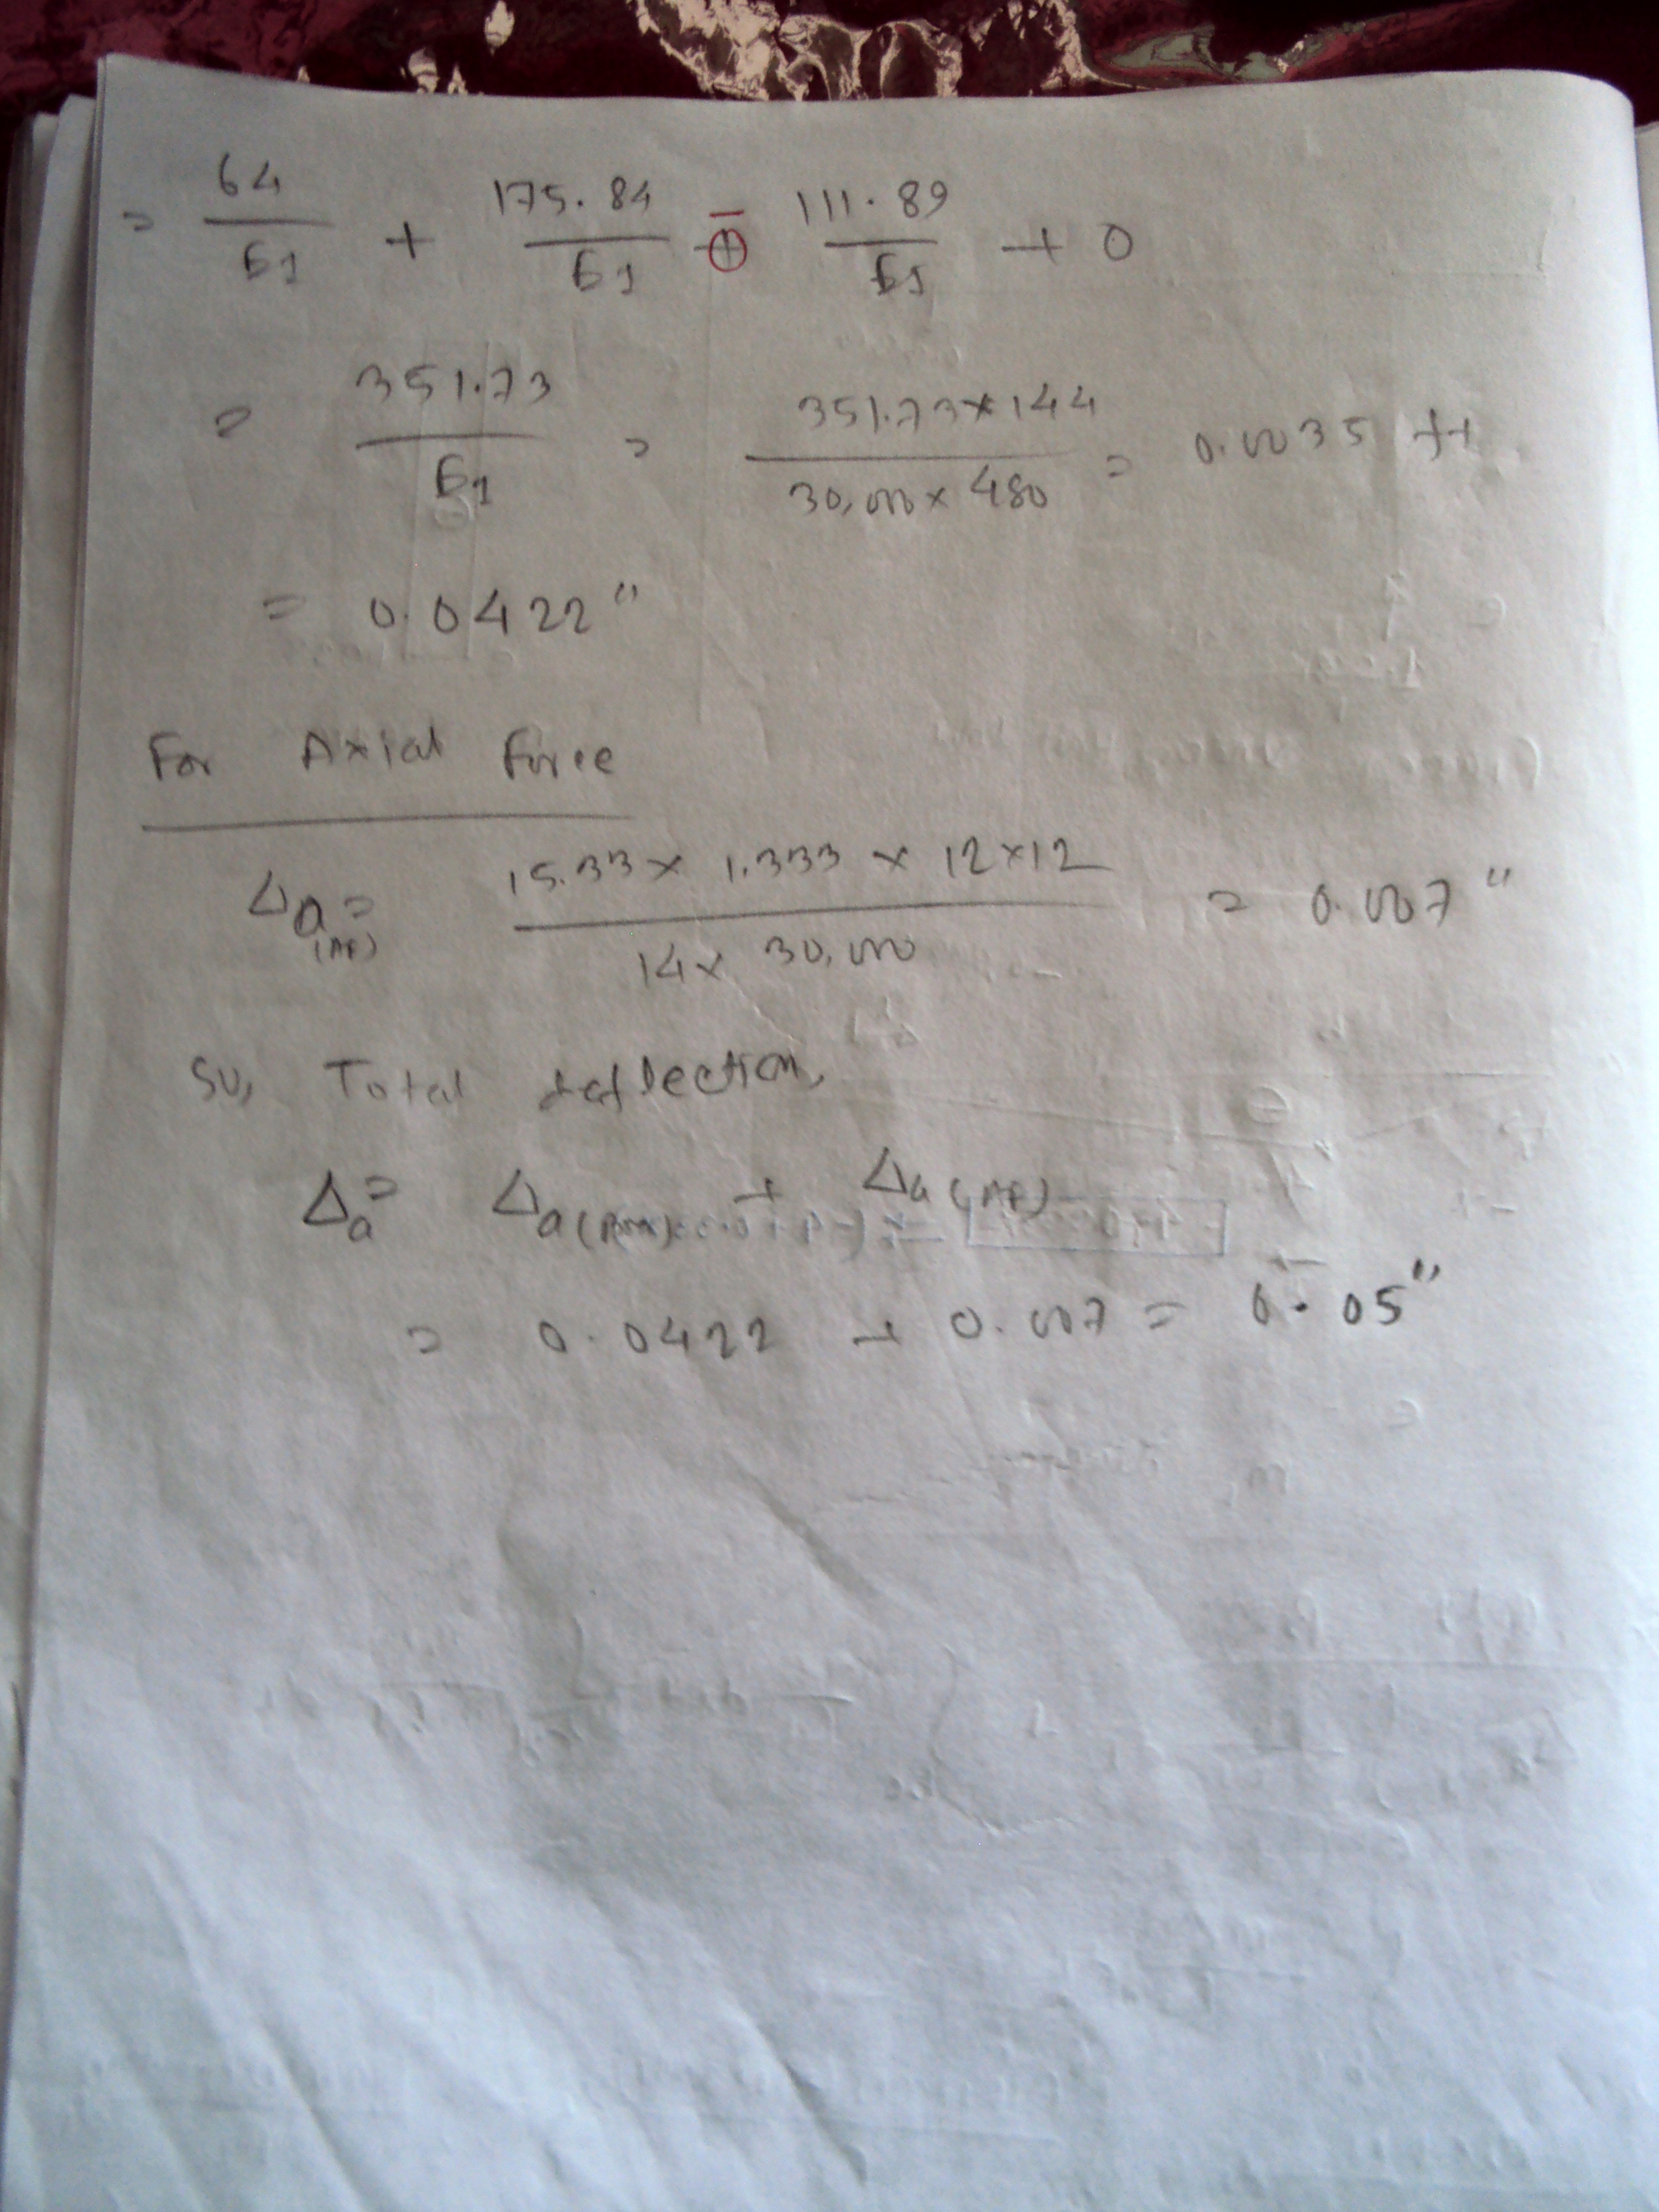 = 64/EI + 175.84/EI + − 111.89/EI + 0
= 351.73/EI = 351.73×144 / 30,000×480 = 0.0035 ft
= 0.0422"
For Axial Force
Δa(AF) = 15.33 × 1.333 × 12×12 / 14× 30,000 = 0.007"
So, Total deflection,
Δa = Δa + Δa (AF)
= 0.0422 + 0.007 = 0.05"